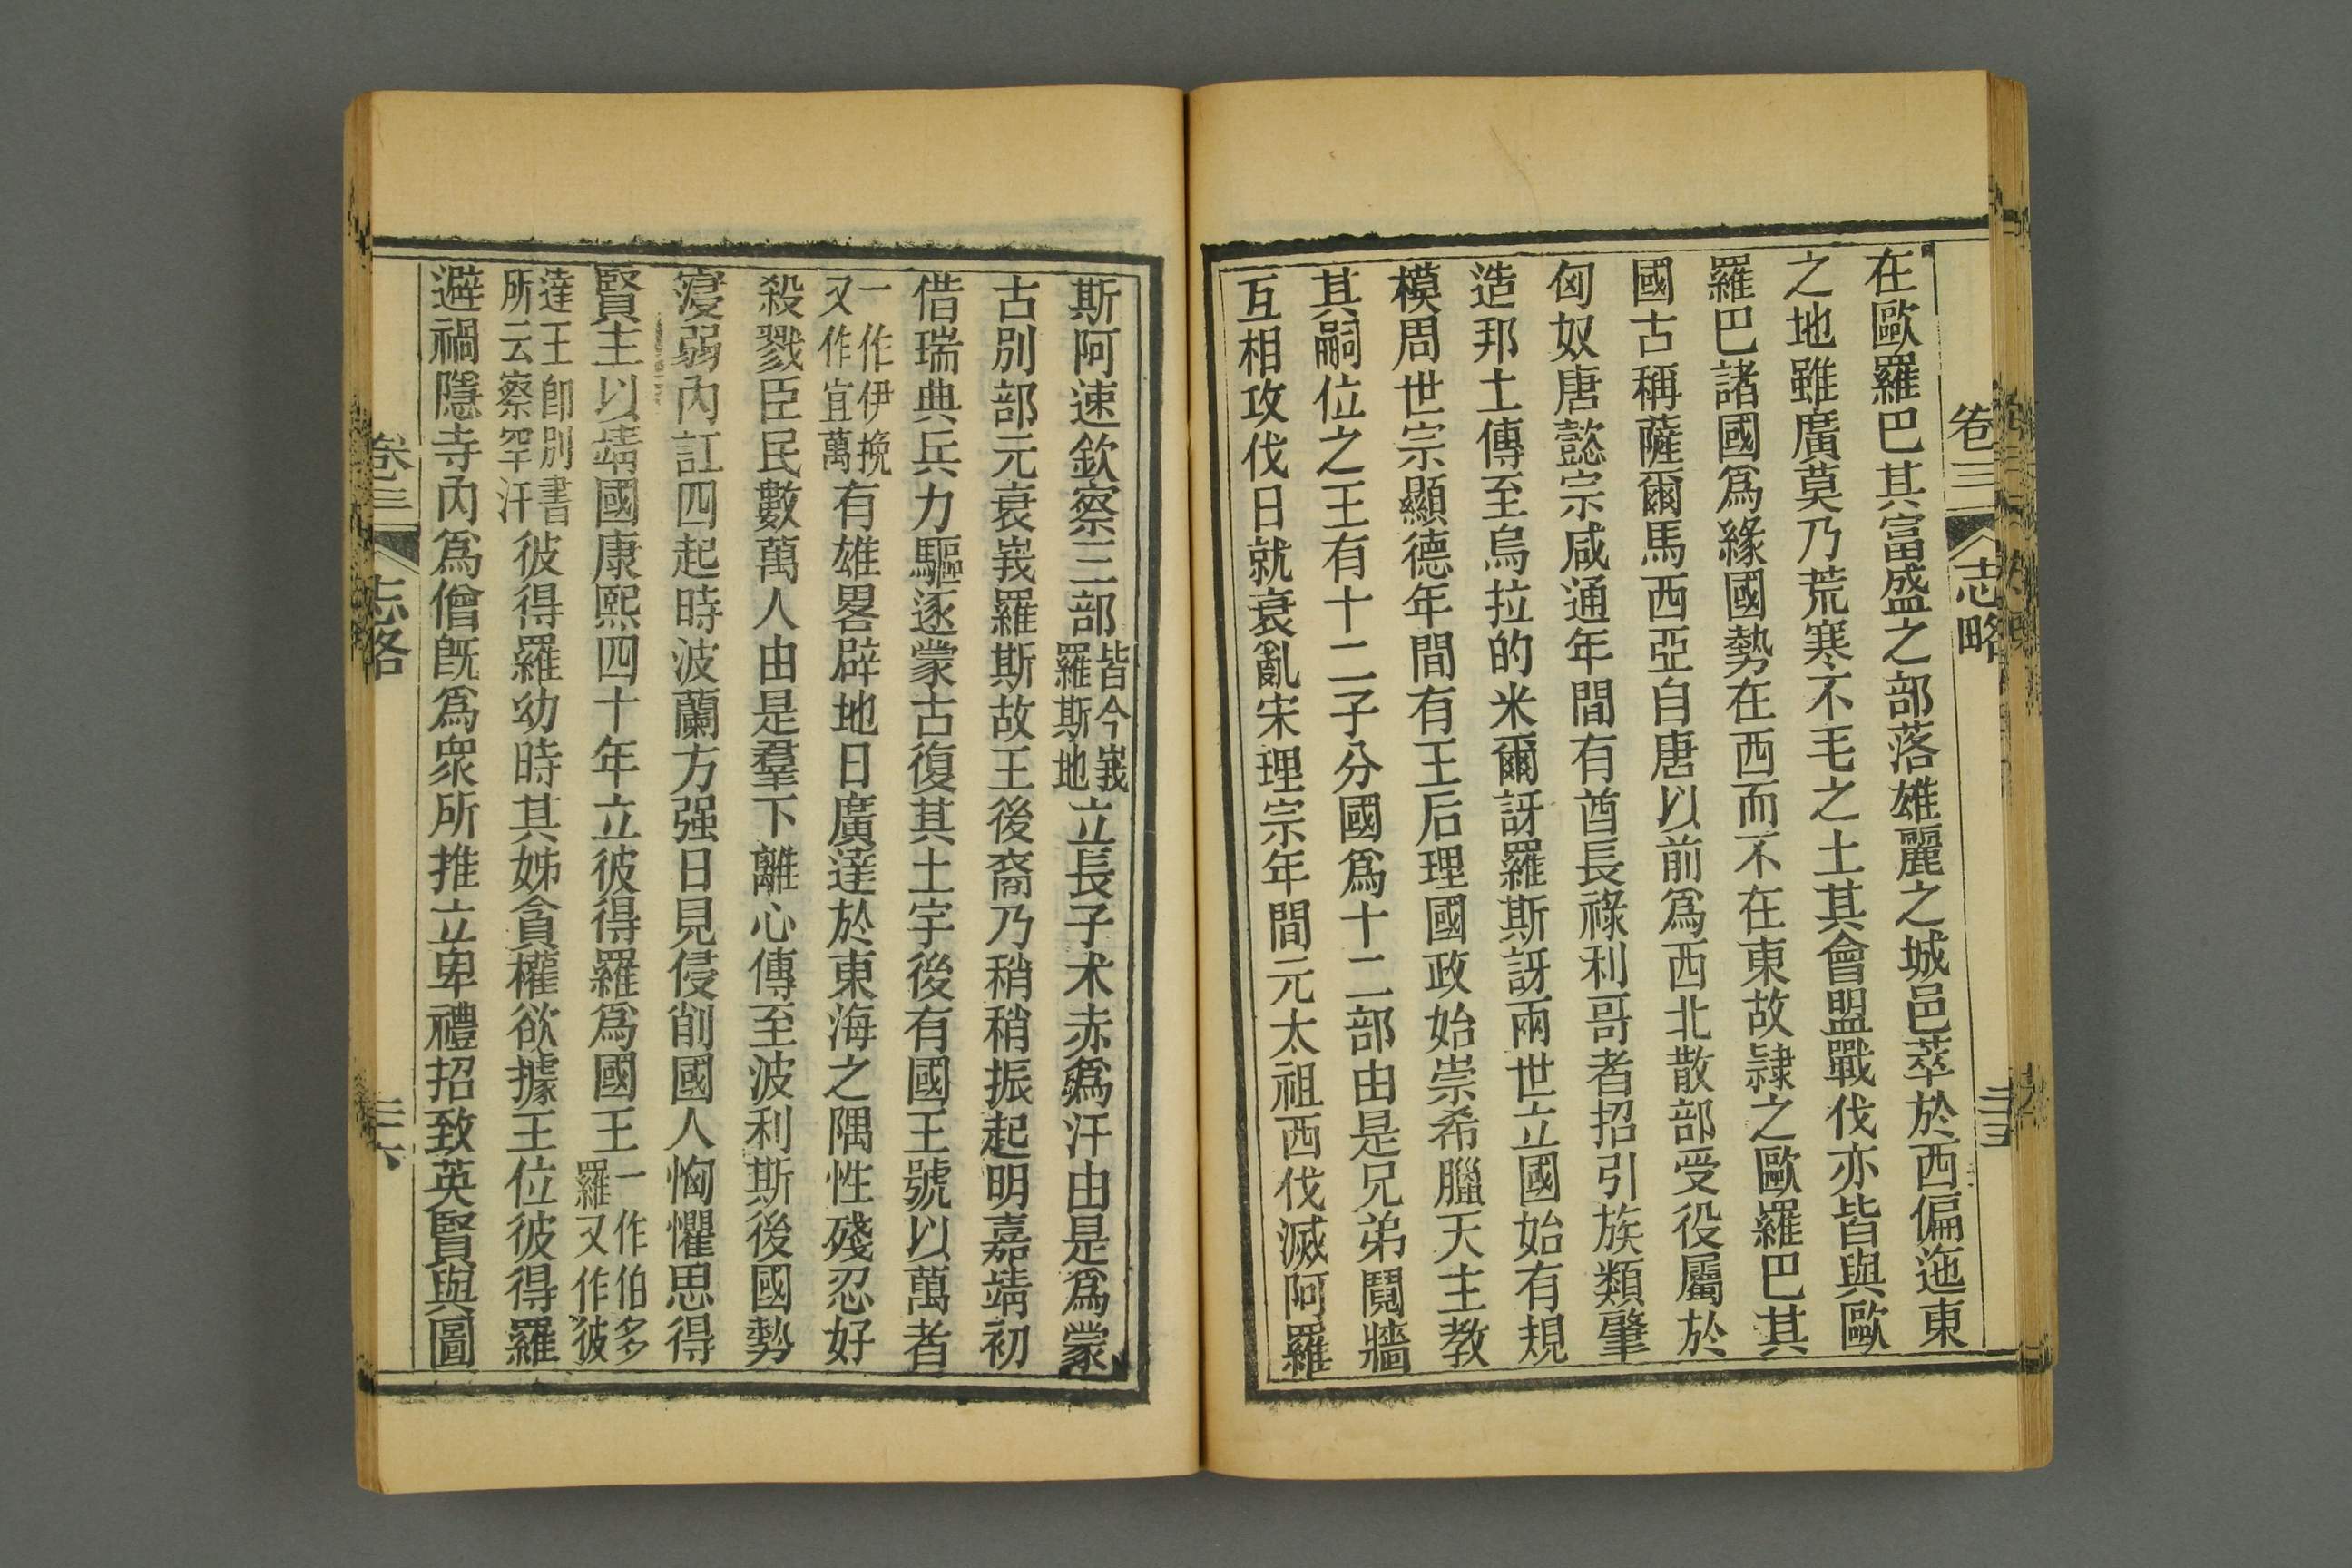 卷三
志略
三五
在歐羅巴其富盛之部落雄麗之城邑萃於西偏迤東
之地雖廣莫乃荒寒不毛之土其會盟戰伐亦皆與歐
羅巴諸國爲緣國勢在西而不在東故隷之歐羅巴其
國古稱薩爾馬西亞自唐以前爲西北散部受役屬於
匈奴唐懿宗咸通年間有酋長祿利哥者招引族類肇
造邦土傳至烏拉的米爾訝羅斯訝兩世立國始有規
模周世宗顯德年間有王后理國政始崇希臘天主教
其嗣位之王有十二子分國爲十二部由是兄弟鬩牆
互相攻伐日就衰亂宋理宗年間元太祖西伐滅阿羅
斯阿速欽察三部皆今峩羅斯地立長子朮赤爲汗由是爲蒙
古別部元衰峩羅斯故王後裔乃稍稍振起明嘉靖初
借瑞典兵力驅逐蒙古復其土宇後有國王號以萬者
一作伊挽又作宜萬有雄畧辟地日廣達於東海之隅性殘忍好
殺戮臣民數萬人由是羣下離心傳至波利斯後國勢
寖弱內訌四起時波蘭方强日見侵削國人恟懼思得
賢主以靖國康熙四十年立彼得羅爲國王一作伯多羅又作彼
達王卽別書所云察罕汗彼得羅幼時其姊貪權欲據王位彼得羅
避禍隱寺內爲僧旣爲眾所推立卑禮招致英賢與圖
卷三
志略
三六